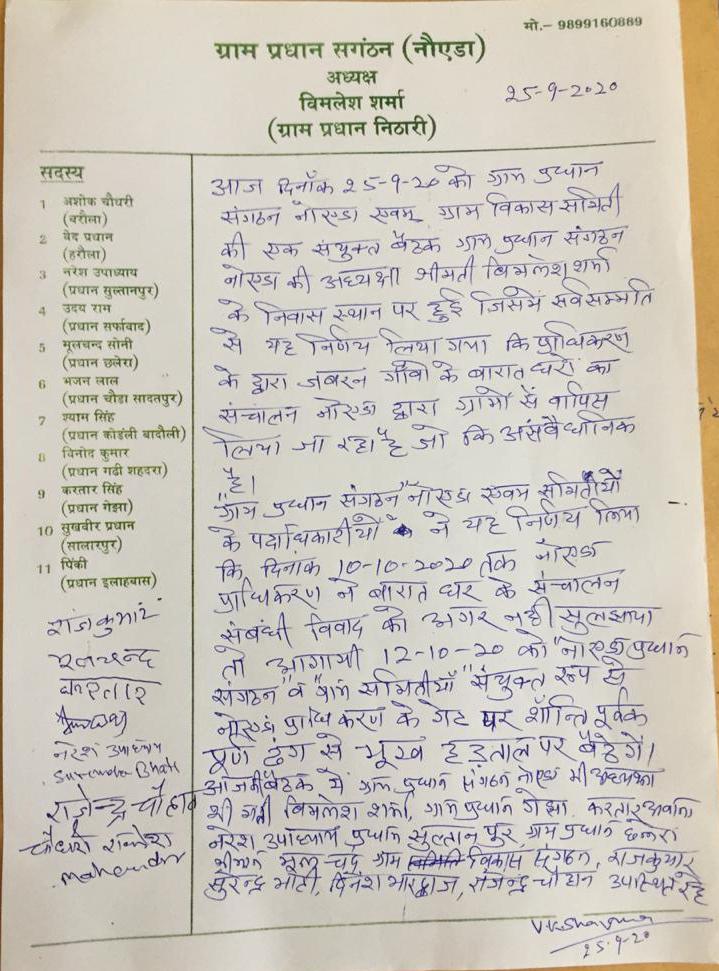 मो.- 9899160889
ग्राम प्रधान सगंठन (नौएडा)
अध्यक्ष
विमलेश शर्मा
(ग्राम प्रधान निठारी)
25-9-2020
सदस्य
1 अशोक चौधरी
(बरौला)
2 वेद प्रधान
(हरौला)
3 नरेश उपाध्याय
(प्रधान सुल्तानपुर)
4 उदय राम
(प्रधान सर्फाबाद)
5 मूलचन्द सोनी
(प्रधान छलेरा)
6 भजन लाल
(प्रधान चौडा सादतपुर)
7 श्याम सिंह
(प्रधान कोडंली बादौली)
8 विनोद कुमार
(प्रधान गढी शहदरा)
9 करतार सिंह
(प्रधान गेझा)
10 सुखवीर प्रधान
(सालारपुर)
11 पिंकी
(प्रधान इलाहबास)
राजकुमार
मूलचन्द
करतार
नरेश उपाध्याय
Surender Bhati
राजेन्द्र चौहान
चौधरी
Mahender
आज दिनाँक 25-9-20 को ग्राम प्रधान
संगठन नोएडा एवम् ग्राम विकास समिती
की एक संयुक्त बैठक ग्राम प्रधान संगठन
नोएडा की अध्यक्षा श्रीमती विमलेश शर्मा
के निवास स्थान पर हुई जिसमें सर्वसम्मति
से यह निर्णय लिया गया कि प्राधिकरण
के द्वारा जबरन गाँवो के बारात घरों का
संचालन नोएडा द्वारा ग्रामों से वापिस
लिया जा रहा है जो कि असंवैधानिक
है।
"ग्राम प्रधान संगठन" नोएडा एवम समितीयों
के पदाधिकारीयों ने यह निर्णय लिया
कि दिनांक 10-10-2020 तक नोएडा
प्राधिकरण ने बारात घर के संचालन
संबंधी विवाद को अगर नही सुलझाया
तो आगामी 12-10-20 को "नोएडा प्रधान
संगठन" व "ग्राम समितीयाँ" संयुक्त रूप से
नोएडा प्राधिकरण के गेट पर शान्ति पूर्वक
पूर्ण ढंग से भूख हड़ताल पर बैठेगें।
आज की बैठक में ग्राम प्रधान संगठन नोएडा की अध्यक्षा
श्री मती विमलेश शर्मा, ग्राम प्रधान गेझा करतार
नरेश उपाध्याय प्रधान सुल्तान पुर, ग्राम प्रधान छलेरा
मूल चंद, ग्राम विकास संगठन, राजकुमार
सुरेन्द्र भाटी, दिनेश भारद्वाज, राजेन्द्र चौहान उपस्थित रहे
V.K. Sharma
25-9-20